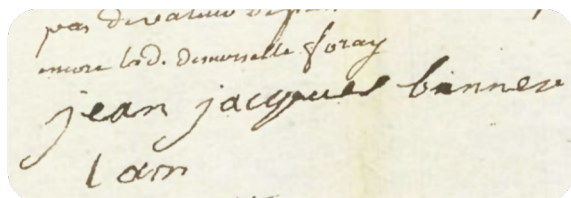 pas de valeur
encore lad. demoiselle foray
jean jacques binner
lam